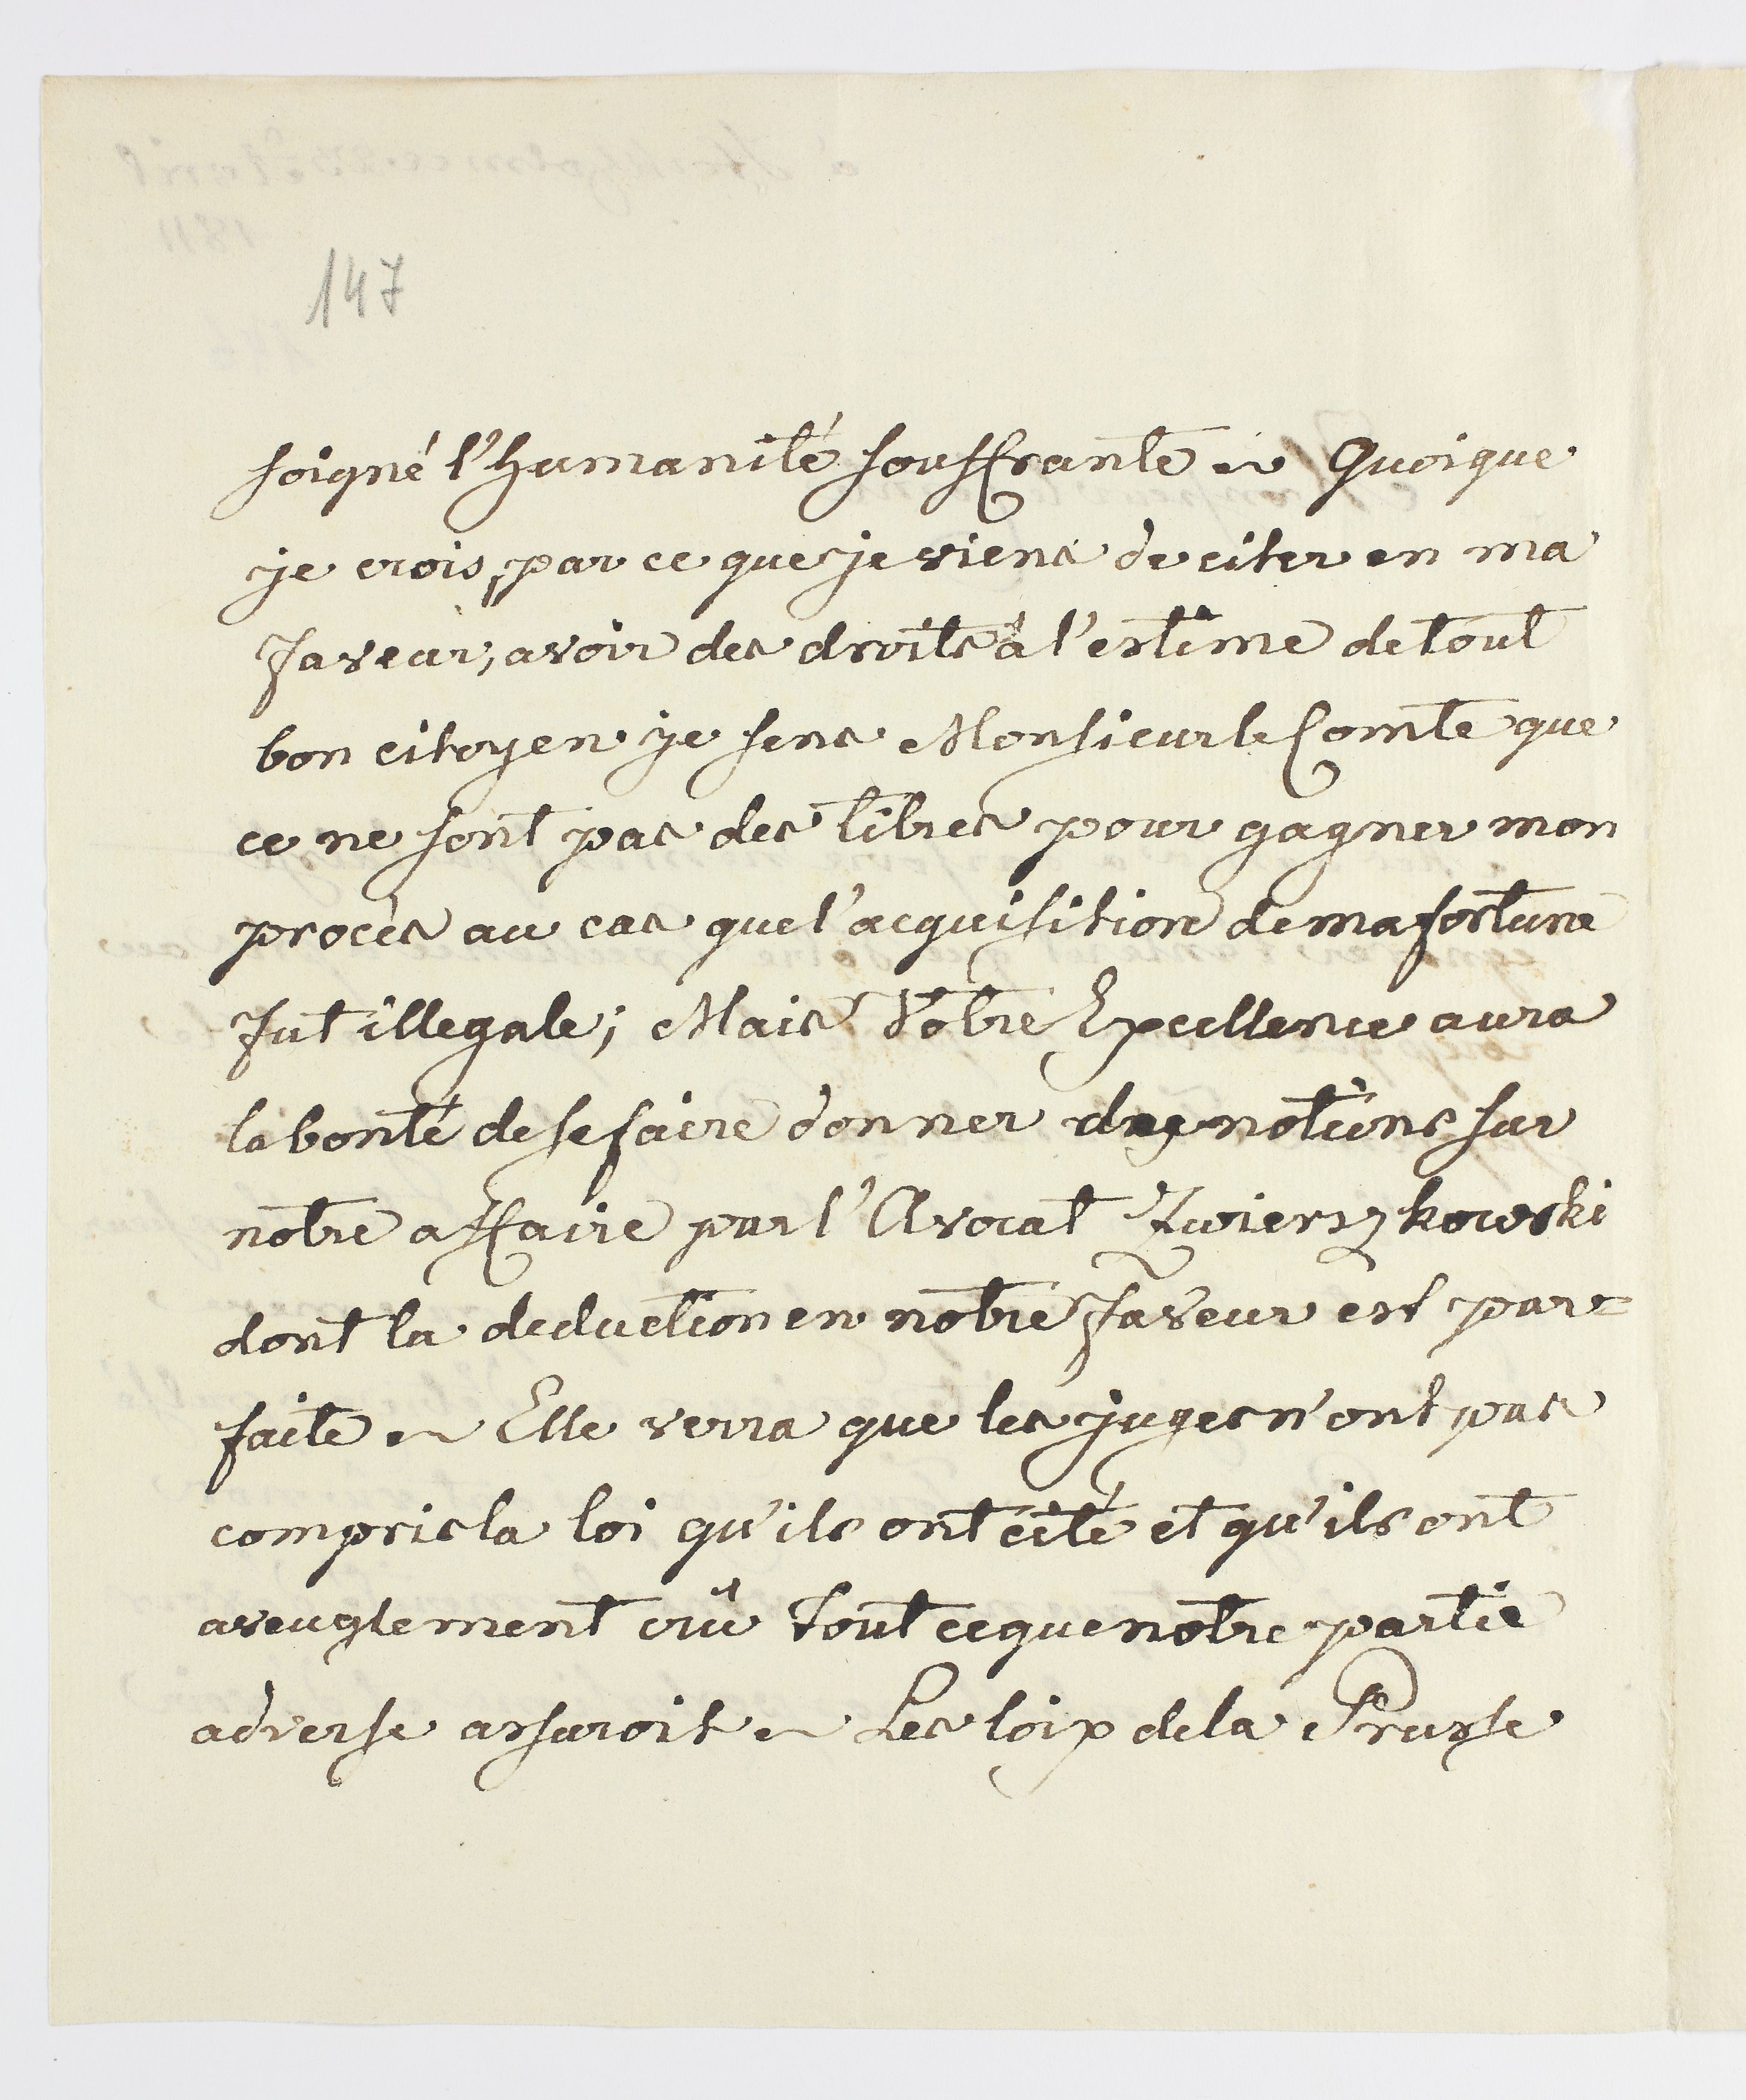 147
soigné l'humanité souffrante ~ Quoique
je crois, par ce que je viens de citer en ma
faveur, avoir des droits à l'estime de tout
bon citoyen je sens Monsieur le Comte que
ce ne sont pas des titres pour gagner mon
procès au cas que l'acquisition de ma fortune
fut illegale; Mais Votre Excellence aura
la bonté de se faire donner des notions sur
notre affaire par l'Avocat Zwierszkowski
dont la deduction en notre faveur est par=
faite ~ Elle verra que les juges n'ont pas
compris la loi qu'ils ont cité et qu'ils ont
aveuglement crû tout ce que notre partie
adverse assuroit ~ Les loix de la Prusse